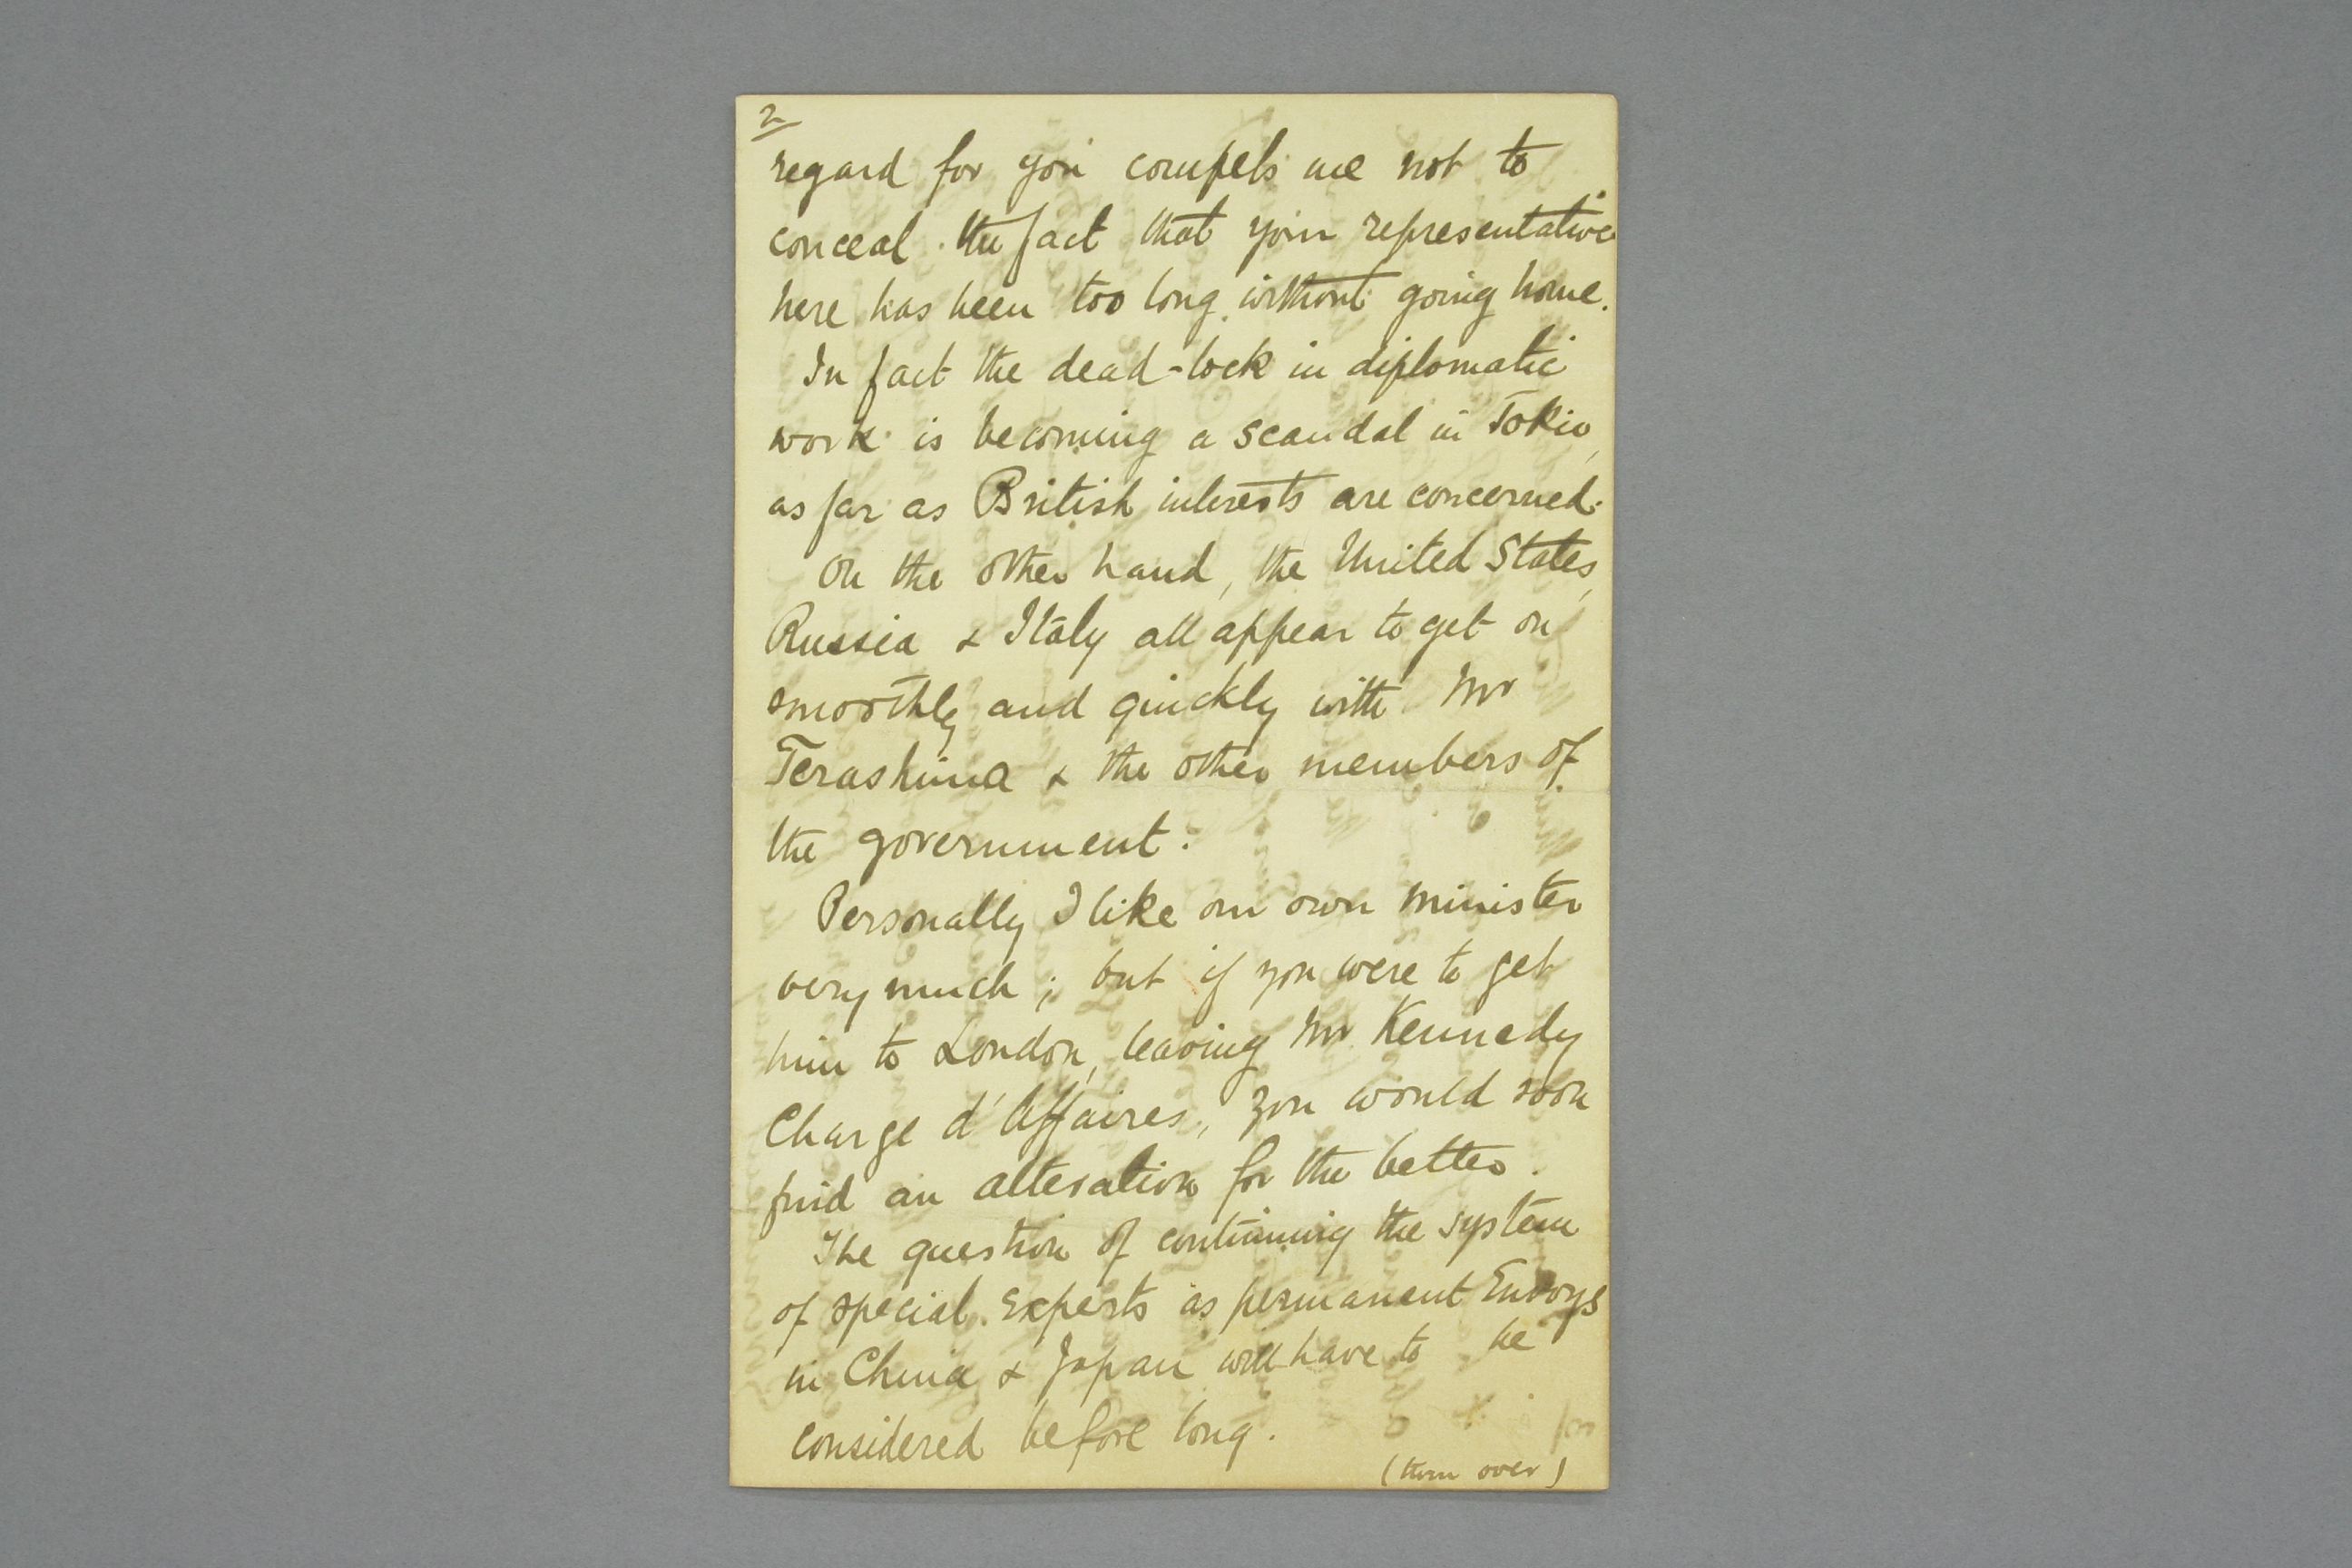 2
regard for you compels me not to
conceal the fact that your representative
here has been too long without going home.
In fact the dead-lock in diplomatic
work is becoming a scandal in Tokio,
as far as British interests are concerned.
On the other hand, the United States,
Russia & Italy all appear to get on
smoothly and quickly with Mr
Terashima & the other members of
the government.
Personally I like our own minister
very much; but if you were to get
him to London, leaving Mr Kennedy
Charge d'Affaires, you would soon
find an alteration for the better.
The question of continuing the system
of special experts as permanent Envoys
in China & Japan will have to be
considered before long.
(turn over)